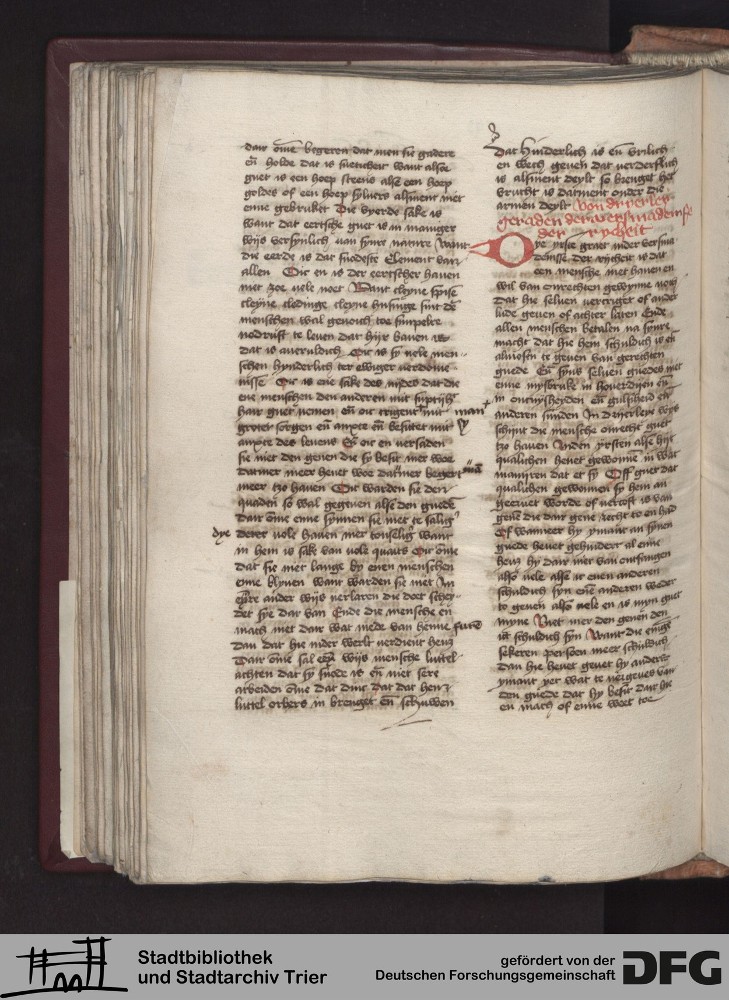 dair om̄e begeren dat men sie gadere
en̄ holde dat is sueticheit want alsoe
guet is een hoep steens alse een hoep
goldes of een hoep sylvers alsment niet
enne gebruket Die vyerde sake is
want dat eertsche guet is in manniger
wijs versynlich van synre nature Want
die eerde is dat snodeste Element van
allen Oic en is der eertscher haven
niet zoe vele noet Want cleyne spise
cleyne cledinge cleyne husinge sint den
menschen wal genoich toe simpelre
nodruft te leven dat hijr baven is
dat is averulodich Oic is sy vele men-
schen hynderlich ter ewiger verdome-
nisse Oic is ene sake des nijdes dat die
ene menschen den anderen mit
hair guet nemen en̄ oic crigent mit
groter sorgen en̄ anxte en̄ besitet mit
anxte des levens En̄ oic en versaden
sie niet den genen die sy besit mer woe
datmer meer hevet woe datmer begert
meer tzo haven Oic warden sie den
quaden so wal gegeven alse den guede
dair om̄e enne synnen sie niet te salig
dye deret vole haven mer
in hem is sake van vole quaits Oic om̄e
dat sie niet lange by enen menschen
enne blyven want warden sie niet In
ander wijs verlaren die doet schey-
det sye dar van Ende die mensche en
mach niet dair wat mede van henne fure
dan dat hie in der werlt verdient hevet
Dair om̄e sal wijs mensche luttel
achten dat sy snode is en̄ niet sere
arbeiden om̄e dat dinc dat dat hem
luttel orbers in brenget en̄ schuwen
dat hinderlich is en̄ vrilich
en wech geven dat verderflich
is alsment deylt so brenget het
vrucht is datment onder die
armen deylt Von dryerley
geraden der versmadenisse
der rycheit
Die yrste graet in der versma
denisse der rycheit is dat
een mensche niet haven en
wil van onrechten gewynne noch
dat hie selven vercryget of ander
lude geven of achter laten Ende
allen menschen betalen na synre
macht dat hie hem schuldich is en̄
almosen te geven van gerechten
guede En̄ syns selven guedes niet
enne mysbruke in hoverdijen en̄
in onkuysheyden en̄ gulsicheid en̄
anderen sunden In dryerleye wijs
schijnt die mensche onrecht guet
tzo haven Inden yrsten alse hijt
qualichen hevet gewonnen in wat
maniren dat et sy Off guet dat
qualichen gewonnen sy hem an
geervet worde of vercoft is van
gene die dair gene recht to en had
Of wanneer hy ymant an synen
guede hevet gehindert al enne
hevet hy dair niet van ontfangen
also vele alse it enen anderen
schuldich syn ene anderen weder
to geven also vele en is myn guet
myne Niet mer den genen den
ic schuldich syn Want die enige
sekeren persoen meer schuldich
dan hie hevet gevet hy andere
ymant yet wat te vergeves van
den guede dat hy besit dair hie
en mach of enne weet toe
Stadtbibliothek
und Stadtarchiv Trier
gefördert von der
Deutschen Forschungsgemeinschaft
DFG